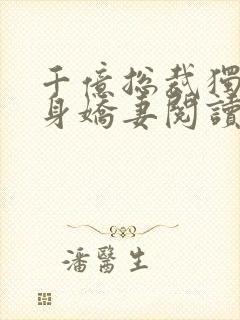 千億總裁獨
身嬌妻閱讀
潘醫生